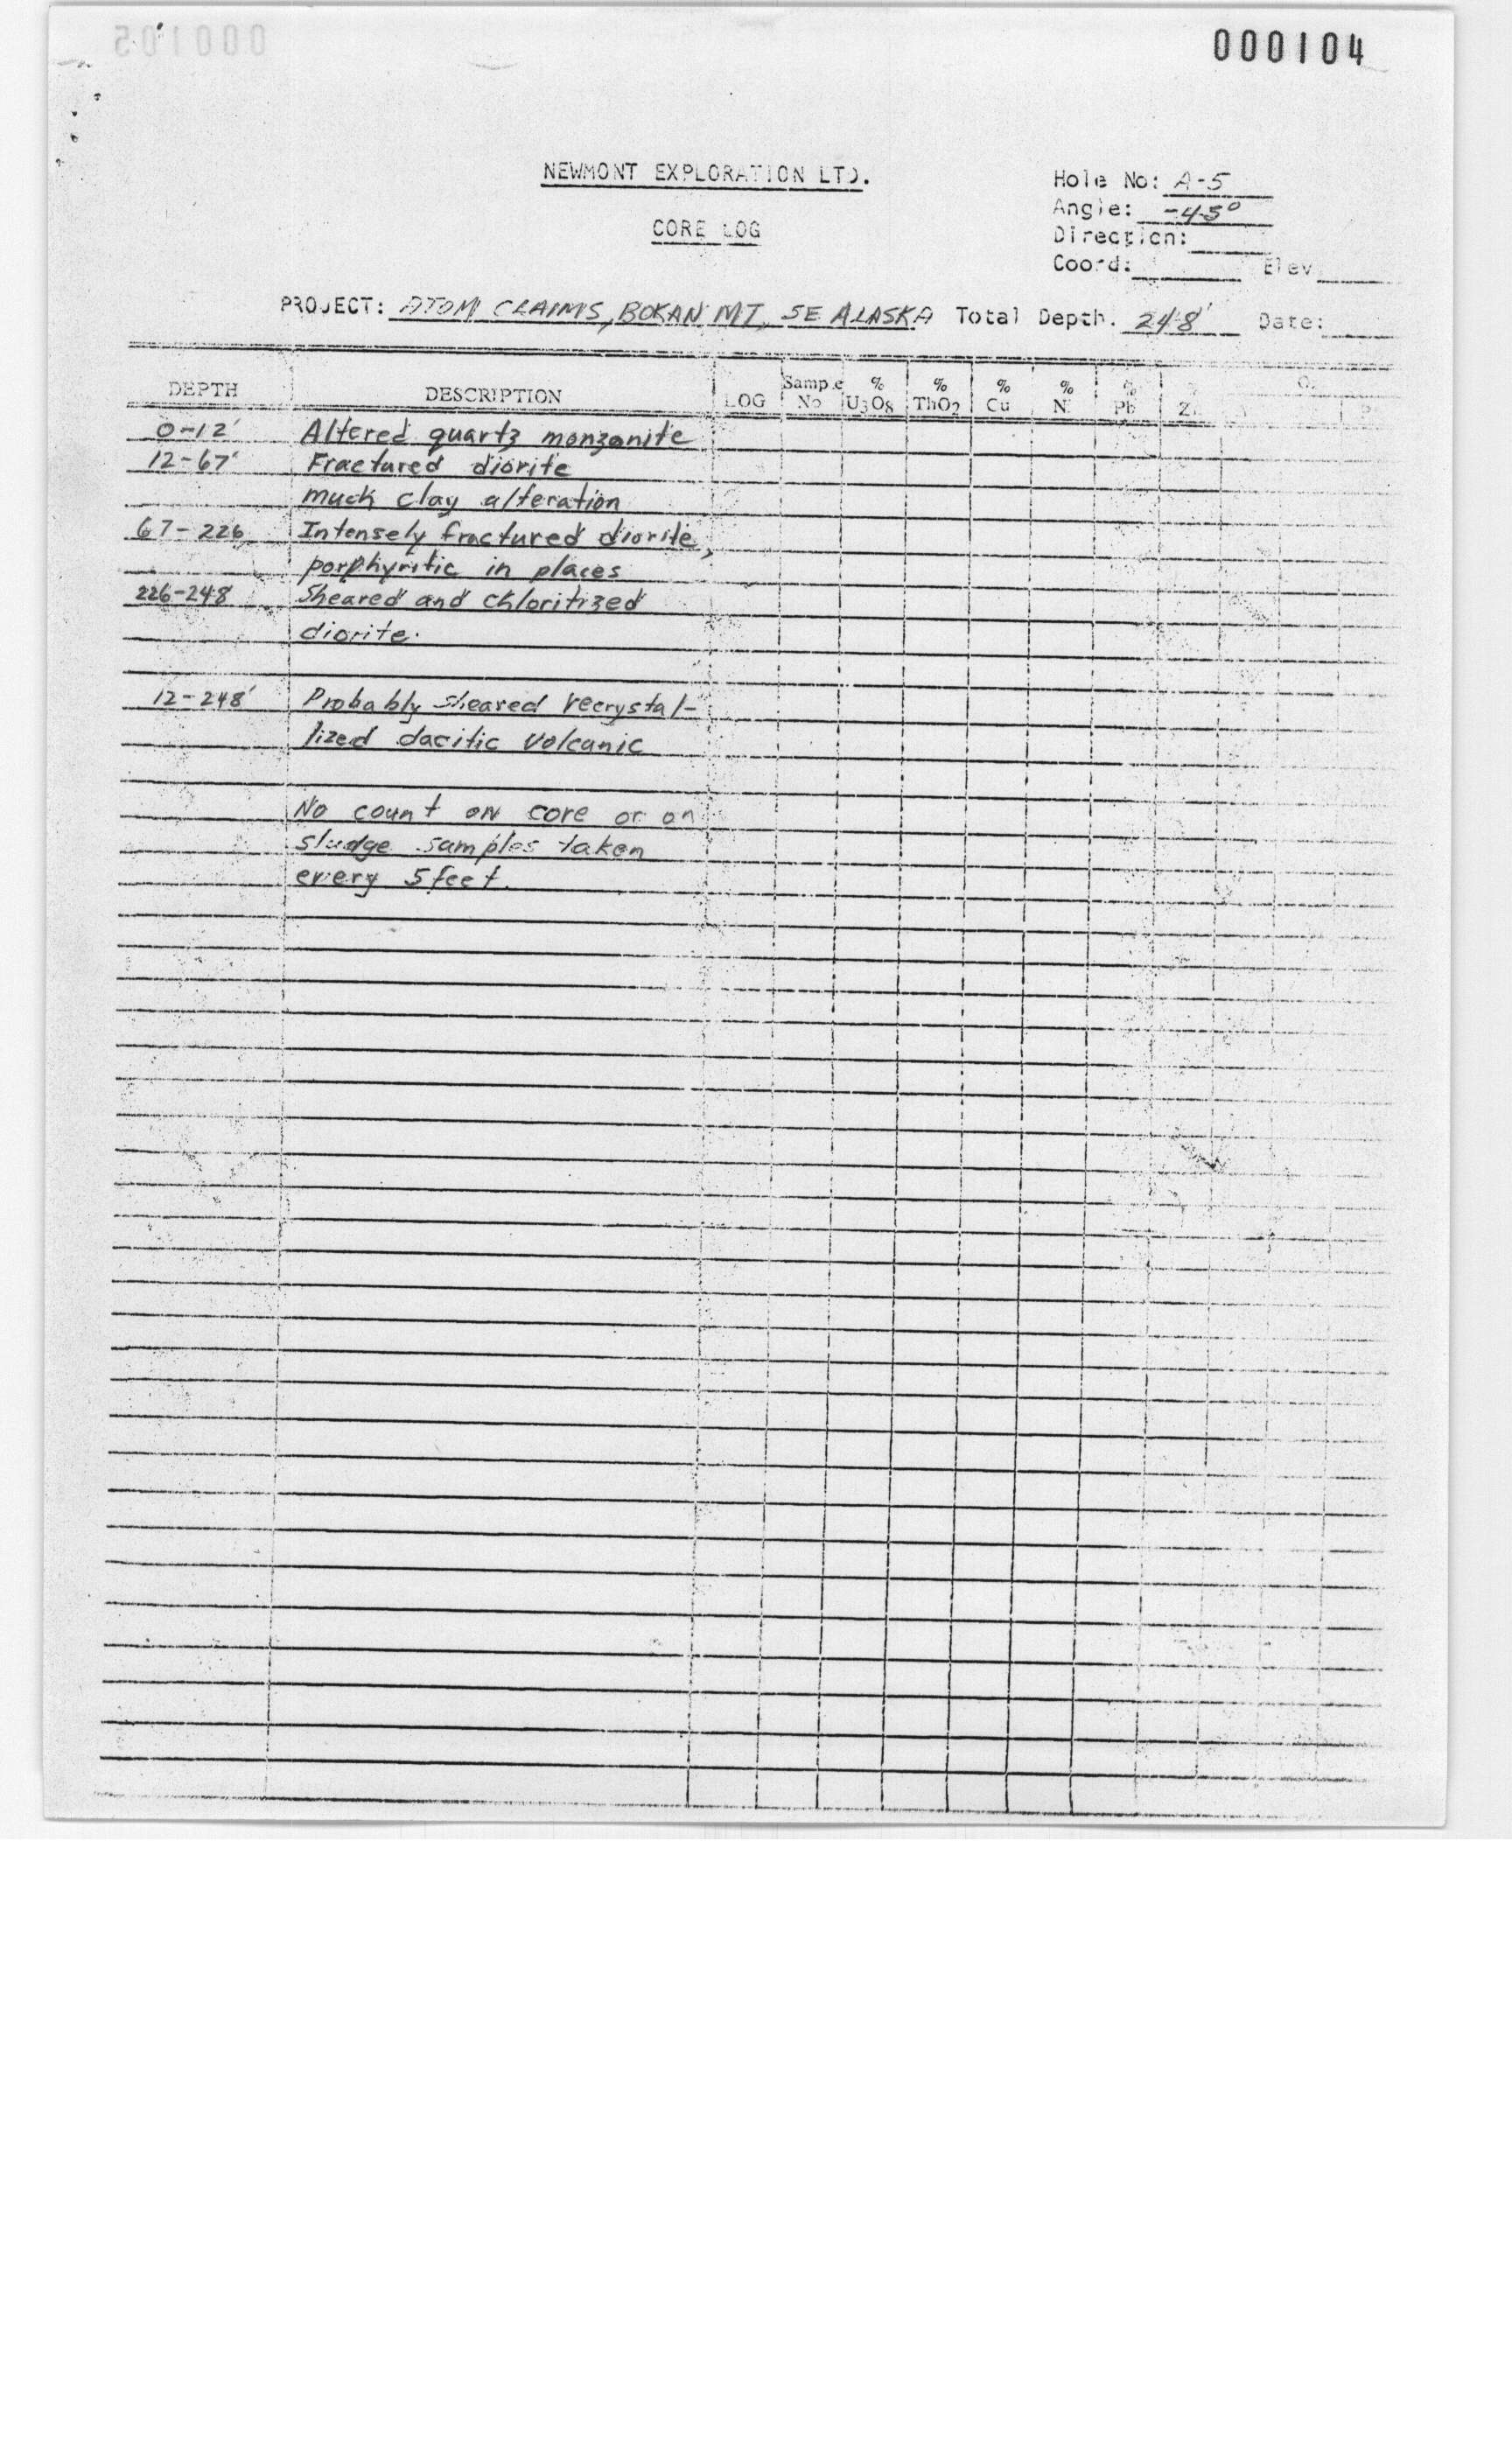 000105
000104
NEWMONT EXPLORATION LTD.
CORE LOG
Hole No: A-5
Angle: -45°
Direction:
Coord: Elev
PROJECT: ATOM CLAIMS, BOKAN MT, SE ALASKA Total Depth. 248' Date:
DEPTH DESCRIPTION LOG Sample No % U3O8 % ThO2 % Cu % Ni % Pb
0-12' Altered quartz monzonite
12-67' Fractured diorite
much clay alteration
67-226 Intensely fractured diorite,
porphyritic in places
226-248 Sheared and chloritized
diorite.
12-248' Probably sheared recrystal-
lized dacitic volcanic
No count on core or on
sludge samples taken
every 5 feet.